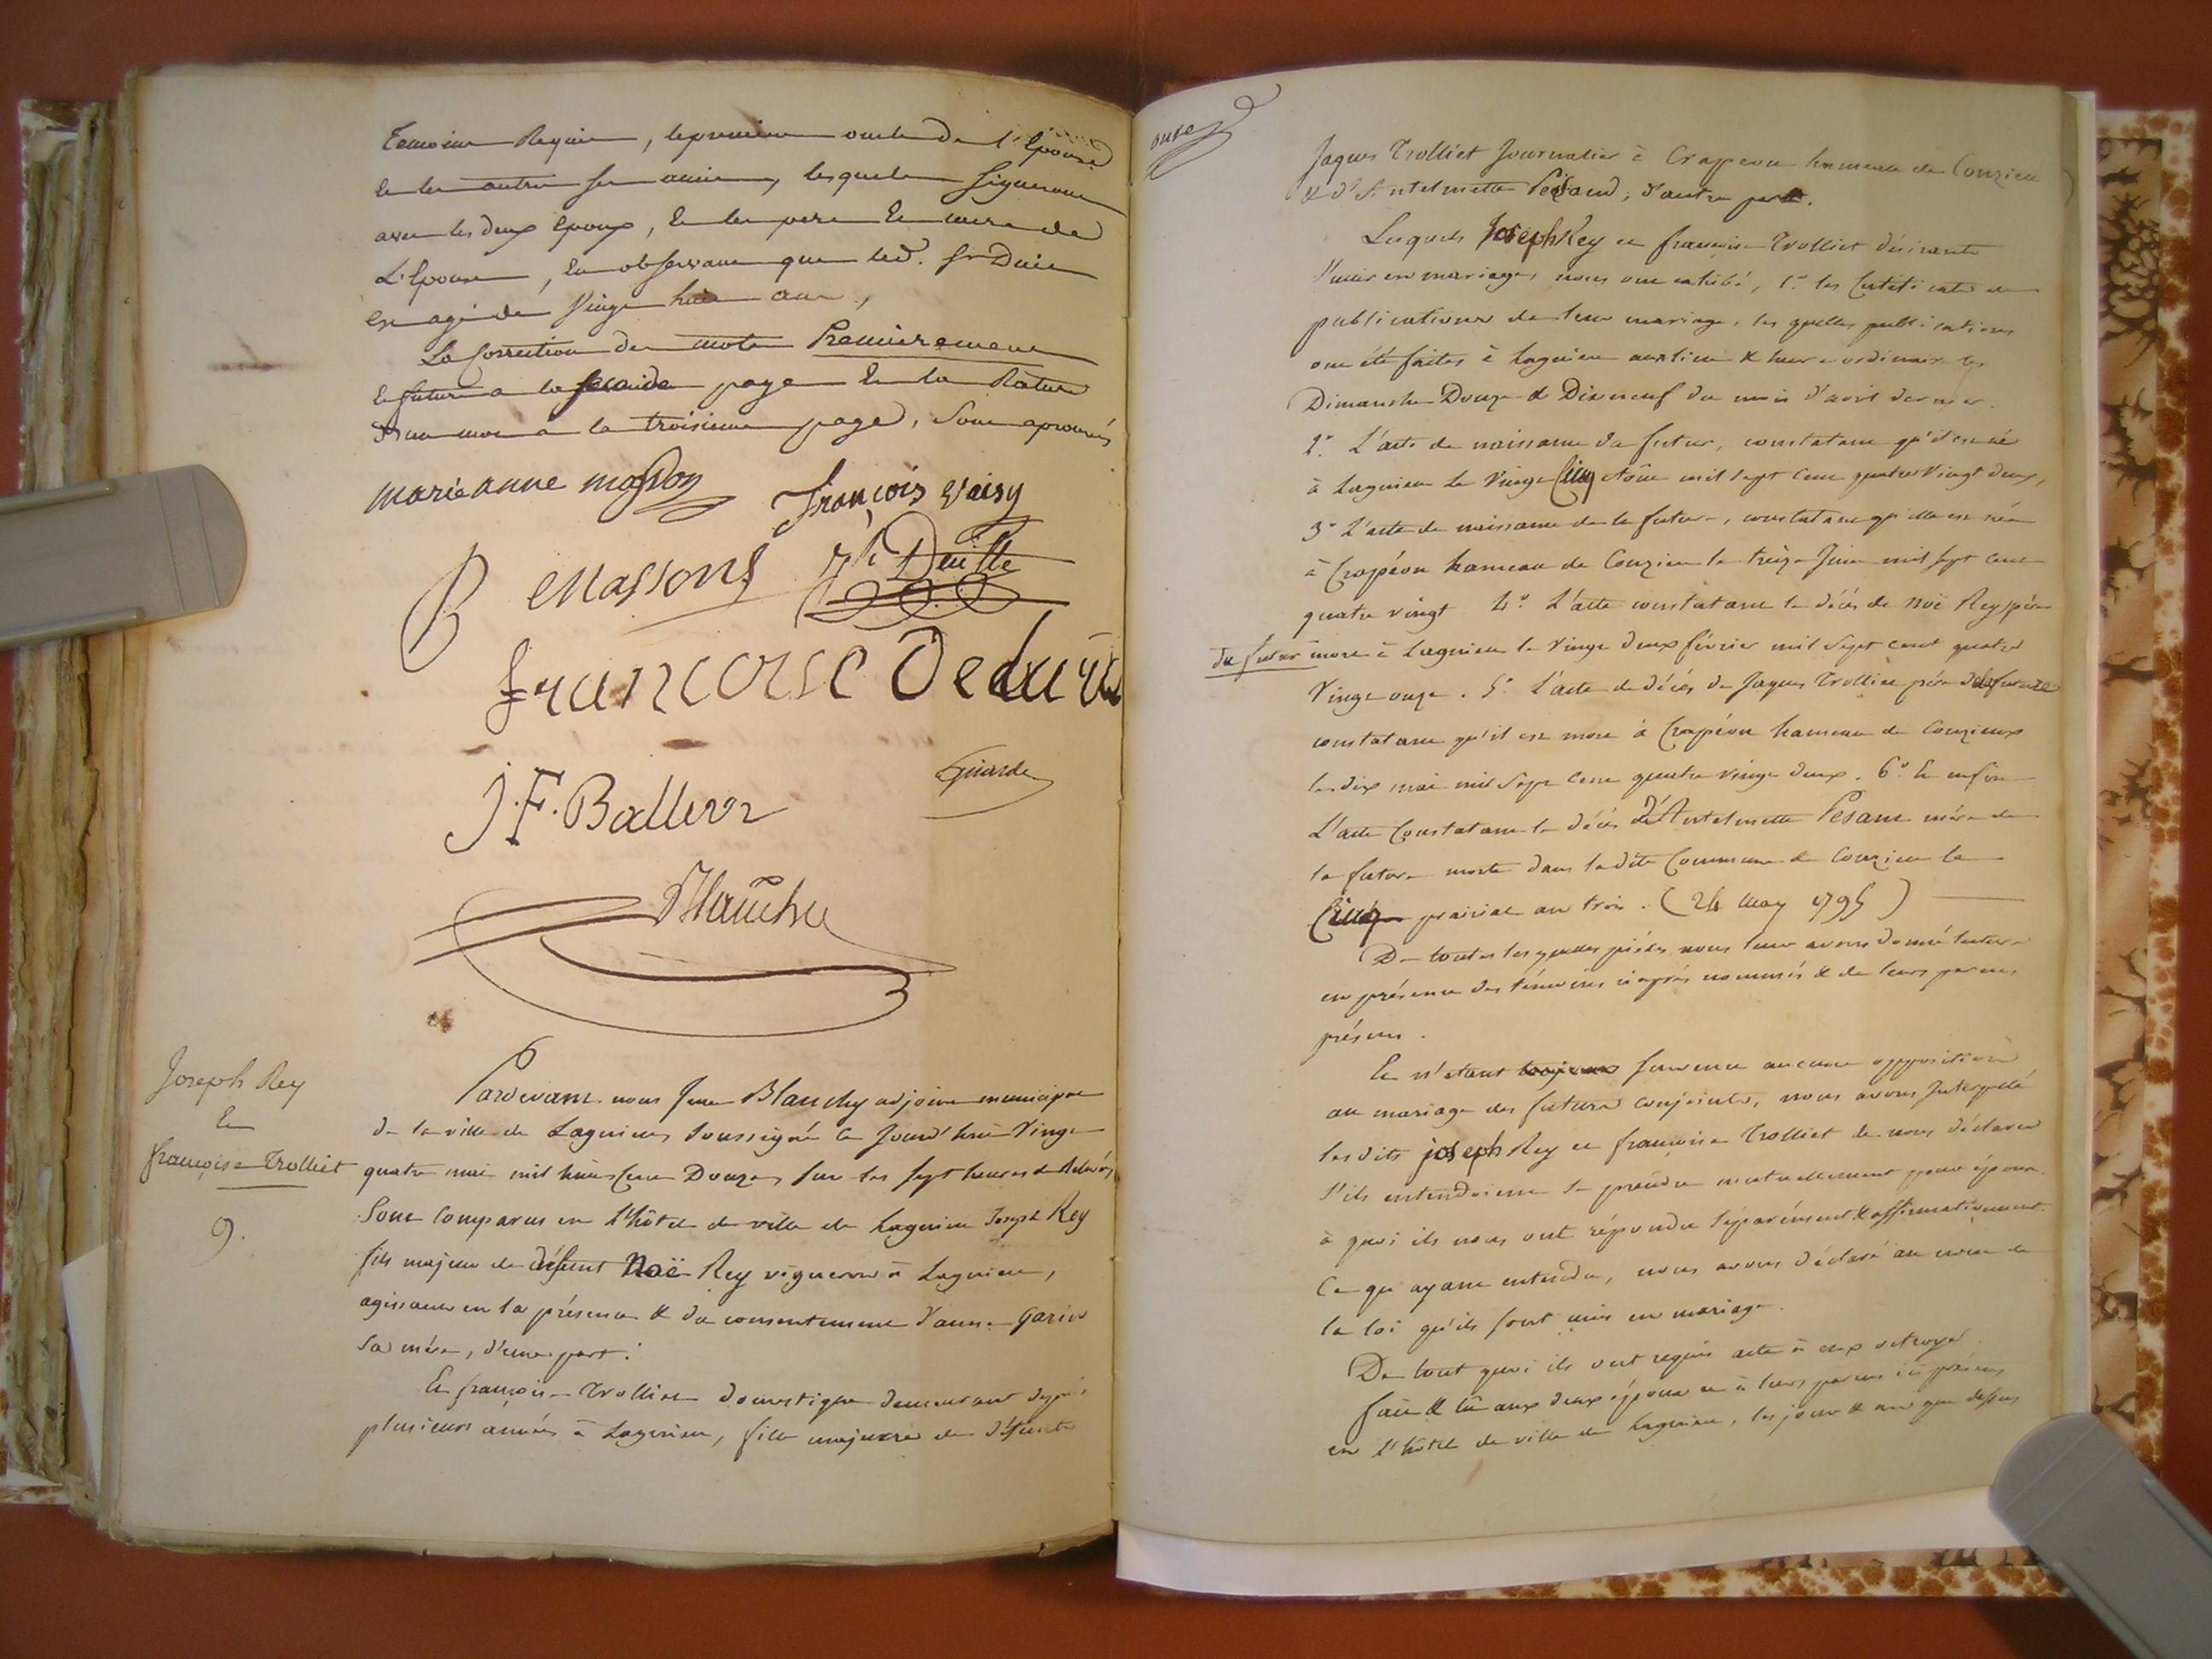 Temoins Requis, le premier oncle de l'Epouse
Et les autres ses amis, lesquels signeront
avec les deux Epoux, Et les pere Et mere de
L'Epouse, En observant que led. sr
Est agé de Vingt huit ans,
La Correction des mots Premierement
Et future a la seconde page Et la Rature
D'un mot a la troisieme page, Sont aprouvés
marie anne masson françois vaisy
B Massons
francoise
J. F. Ballern
Blanchy
Joseph Rey
Et
françoise Trolliet
9.
Pardevant nous Jean Blanchy adjoint municipal
de la ville de Lagnieu Soussigné Ce Jourd'hui Vingt
quatre mai mil huit Cent Douze, sur les sept heures de Relevée,
Sont Comparus en l'hôtel de ville de Lagnieu Joseph Rey
fils majeur de défunt Noë Rey vigneron à Lagnieu,
agissant en la présence & du consentement d'anne Garin
sa mère, d'une part.
Et françoise Trolliet domestique demeurant depuis
plusieurs années à Lagnieu, fille majeure de défunts
onze
Jaques Trolliet Journalier à Crapeou hameau de Conzieu
& d'Antelmette Pesand, d'autre part.
Lesquels Joseph Rey et françoise Trolliet désirants
s'unir en mariage, nous ont exhibé, 1° les Certificats de
publications de leur mariage, les quelles publications
ont été faites à Lagnieu aux lieu & heure ordinaires les
Dimanche Douze & Dixneuf du mois d'avril dernier.
2° L'acte de naissance du futur, constatant qu'il est né
à Lagnieu le Vingt Cinq Août mil sept Cent quatre Vingt deux,
3° L'acte de naissance de la future, constatant qu'elle est née
à Crapéou hameau de Conzieu le treize Juin mil sept cent
quatre vingt 4° L'acte constatant le décès de Noë Rey père
du futur mort à Lagnieu le Vingt deux février mil sept cent quatre
Vingt onze. 5° L'acte de décès de Jaques Trolliet père de la future
constatant qu'il est mort à Crapéou hameau de Conzieux
le dix mai mil sept Cent quatre vingt deux. 6° Et enfin
L'acte Constatant le décès d'Antelmette Pesant mère de
la future morte dans la dite Commune de Conzieu le
Cinq prairial an trois. (24 May 1795)
De toutes les quelles pièces nous leur avons donné lecture
en présence des témoins ci après nommés & de leurs parens
présens.
Et n'étant toujours survenu aucune opposition
au mariage des futurs conjoints, nous avons Interpellé
les dits joseph Rey et françoise Trolliet de nous déclarer
s'ils entendoient se prendre mutuellement pour époux.
à quoi ils nous ont répondu séparément & affirmativement.
Ce qu'ayant entendu, nous avons déclaré au nom de
la loi qu'ils sont unis en mariage.
De tout quoi ils ont requis acte à eux octroyé.
fait & lû aux deux époux et à leurs parens ici présens
en l'hôtel de ville de Lagnieu, les jour & an que dessus